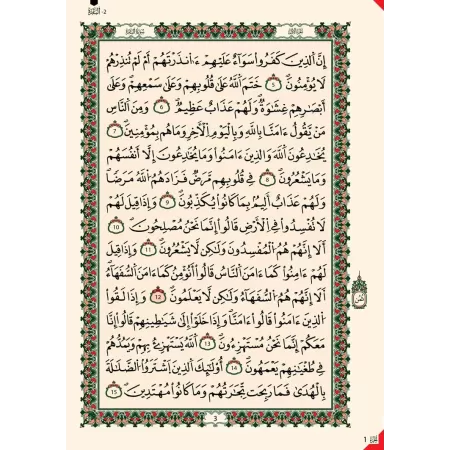 2- البَقَرَة
إِنَّ ٱلَّذِينَ كَفَرُوا۟ سَوَآءٌ عَلَيْهِمْ ءَآنذَرْتَهُمْ أَمْ لَمْ تُنذِرْهُمْ
لَا يُؤْمِنُونَ 5 خَتَمَ ٱللَّهُ عَلَىٰ قُلُوبِهِمْ وَعَلَىٰ سَمْعِهِمْ وَعَلَىٰ
أَبْصَٰرِهِمْ غِشَٰوَةٌ وَلَهُمْ عَذَابٌ عَظِيمٌ 6 وَمِنَ ٱلنَّاسِ
مَن يَقُولُ ءَامَنَّا بِٱللَّهِ وَبِٱلْيَوْمِ ٱلْأَخِرِ وَمَا هُم بِمُؤْمِنِينَ 7
يُخَٰدِعُونَ ٱللَّهَ وَٱلَّذِينَ ءَامَنُوا۟ وَمَا يُخَٰدِعُونَ إِلَّا أَنفُسَهُمْ
وَمَا يَشْعُرُونَ 8 فِى قُلُوبِهِم مَّرَضٌ فَزَادَهُمُ ٱللَّهُ مَرَضًا
وَلَهُمْ عَذَابٌ أَلِيمٌ بِمَا كَانُوا۟ يُكَذِّبُونَ 9 وَإِذَا قِيلَ لَهُمْ
لَا تُفْسِدُوا۟ فِى ٱلْأَرْضِ قَالُوا۟ إِنَّمَا نَحْنُ مُصْلِحُونَ 10
أَلَا إِنَّهُمْ هُمُ ٱلْمُفْسِدُونَ وَلَٰكِن لَّا يَشْعُرُونَ 11 وَإِذَا قِيلَ
لَهُمْ ءَامِنُوا۟ كَمَا ءَامَنَ ٱلنَّاسُ قَالُوا۟ أَنُؤْمِنُ كَمَا ءَامَنَ ٱلسُّفَهَآءُ
أَلَا إِنَّهُمْ هُمُ ٱلسُّفَهَآءُ وَلَٰكِن لَّا يَعْلَمُونَ 12 وَإِذَا لَقُوا۟
ٱلَّذِينَ ءَامَنُوا۟ قَالُوا۟ ءَامَنَّا وَإِذَا خَلَوْا۟ إِلَىٰ شَيَٰطِينِهِمْ قَالُوا۟ إِنَّا
مَعَكُمْ إِنَّمَا نَحْنُ مُسْتَهْزِءُونَ 13 ٱللَّهُ يَسْتَهْزِئُ بِهِمْ وَيَمُدُّهُمْ
فِى طُغْيَٰنِهِمْ يَعْمَهُونَ 14 أُو۟لَٰٓئِكَ ٱلَّذِينَ ٱشْتَرَوُا۟ ٱلضَّلَٰلَةَ
بِٱلْهُدَىٰ فَمَا رَبِحَت تِّجَٰرَتُهُمْ وَمَا كَانُوا۟ مُهْتَدِينَ 15
3
1